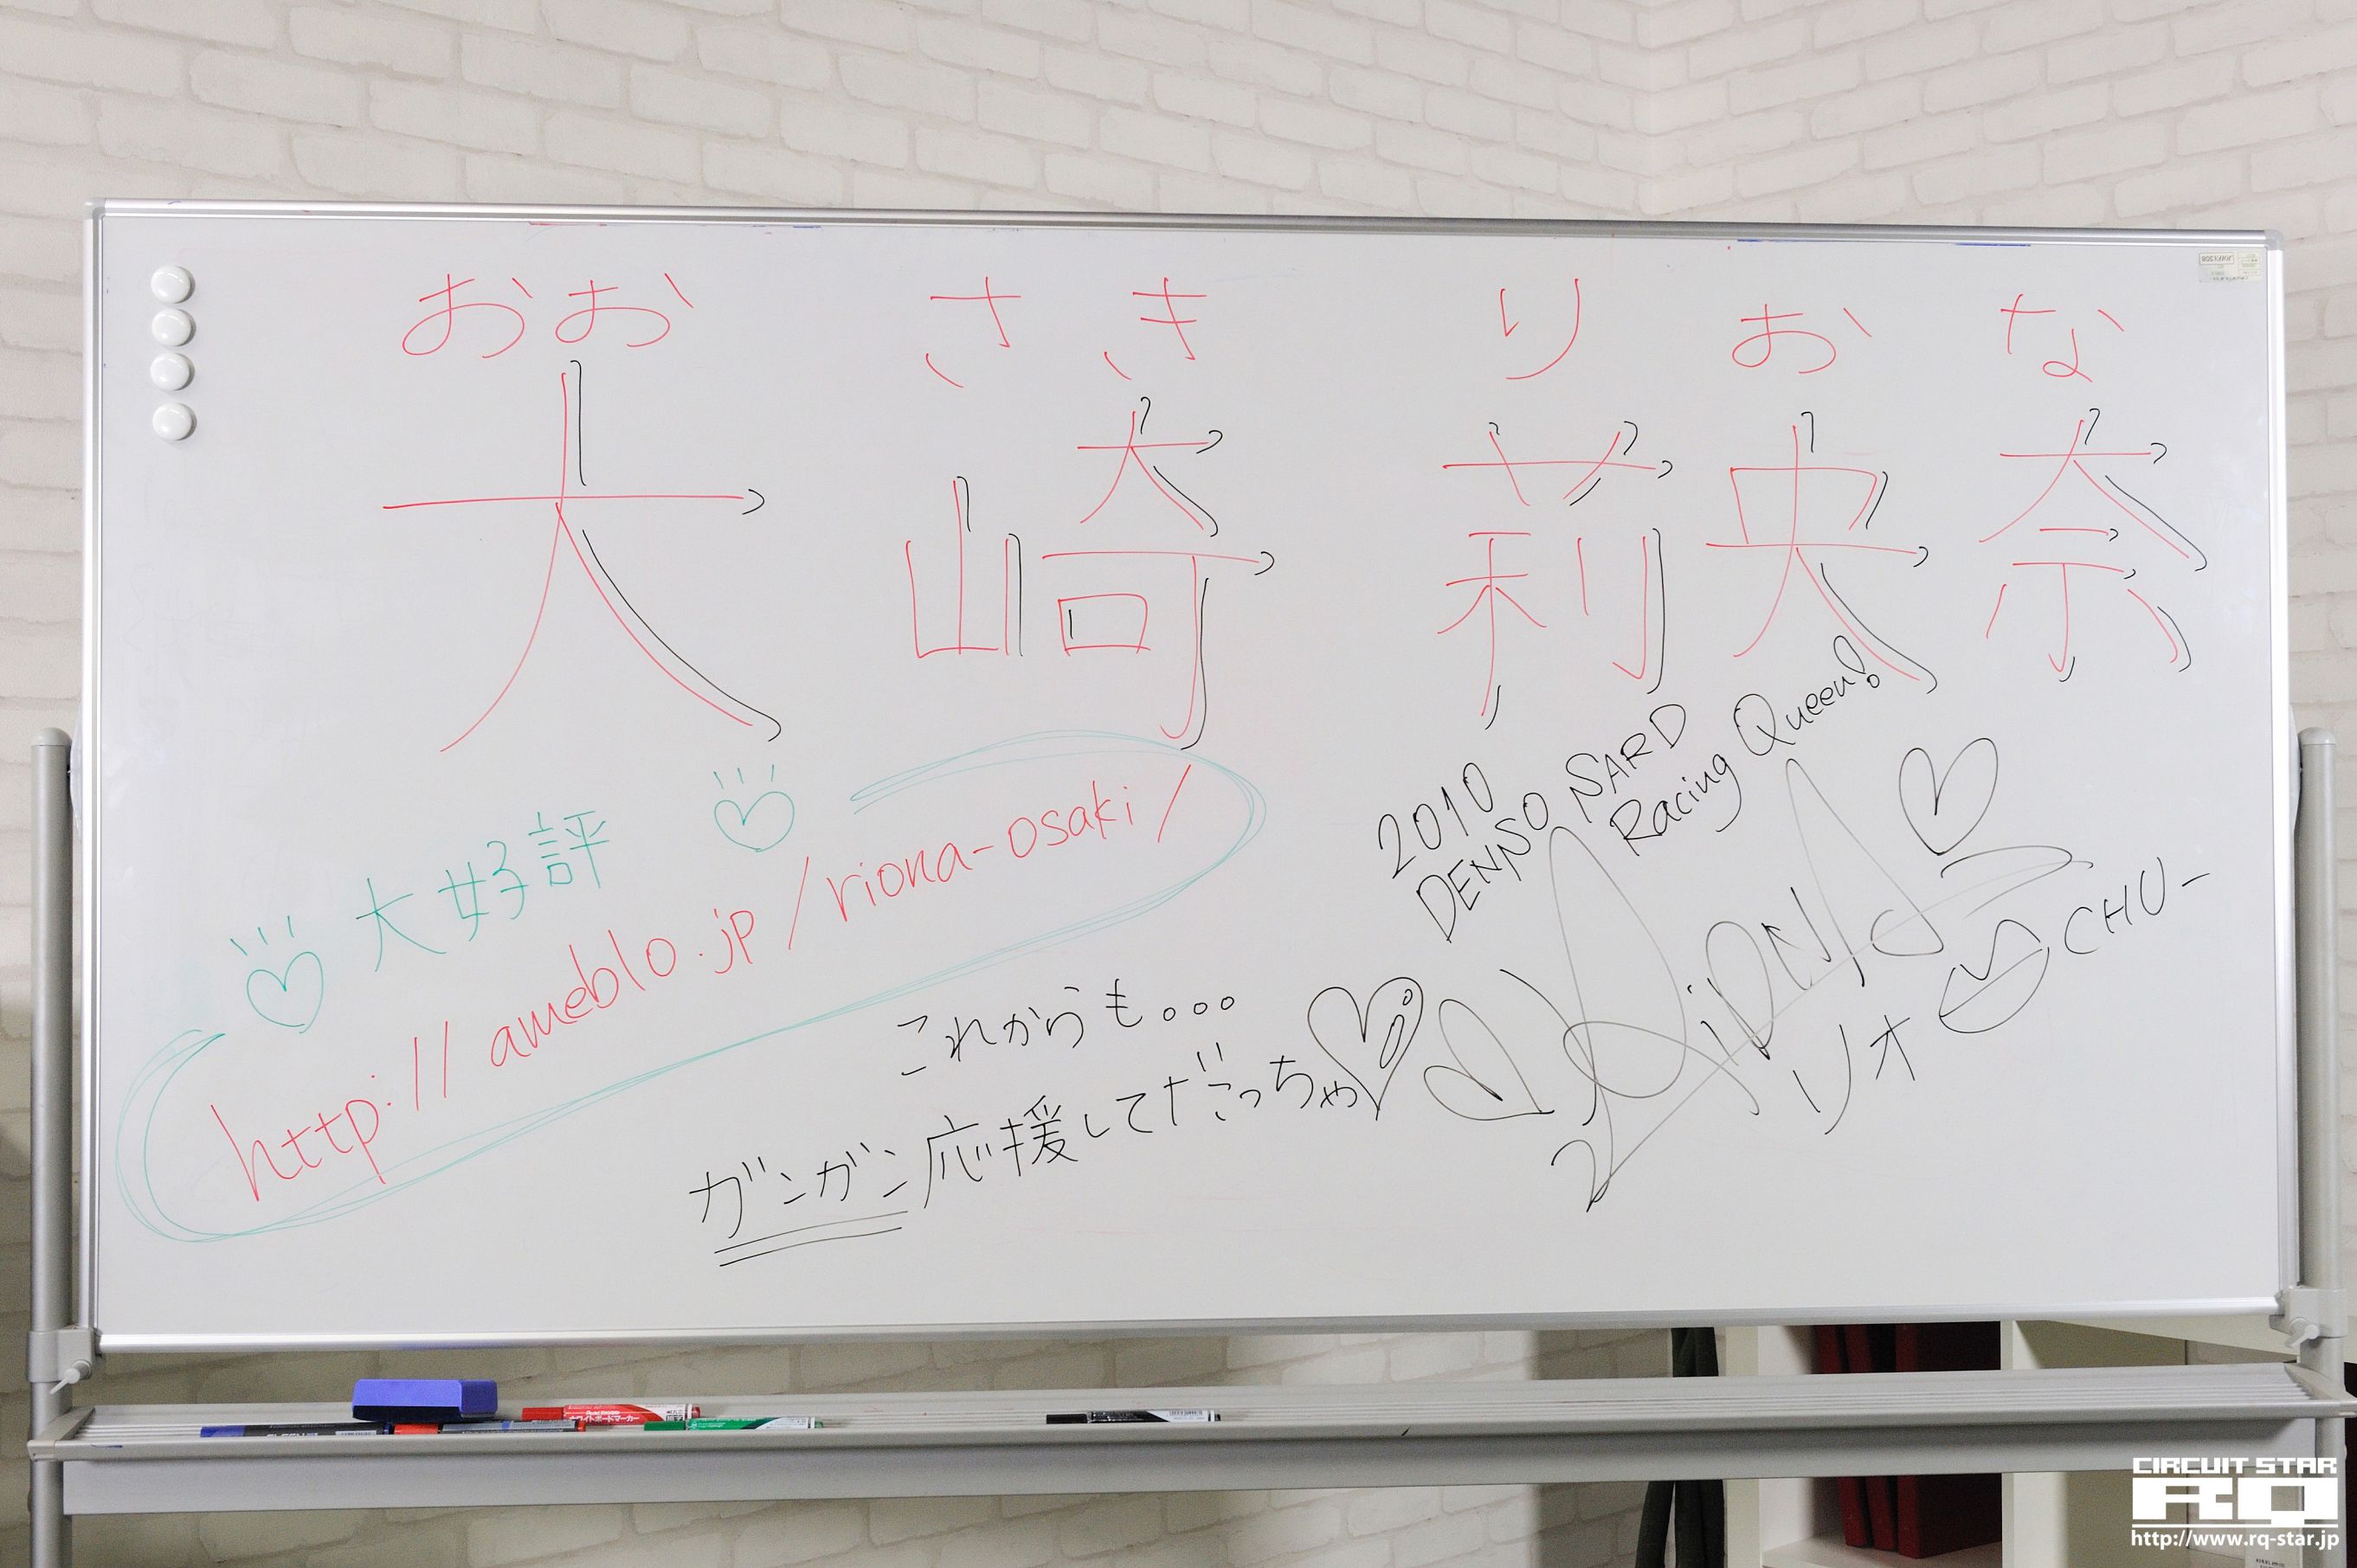 おお さき りおな
大崎莉央奈
大好評
http://ameblo.jp/riona-osaki/
2010
DENSO SARD
Racing Queen!
RiONA
リオ CHU-
これからも。。。
ガンガン応援してだっちゃ
ホワイトボードマーカー
CIRCUIT STAR
RQ
http://www.rq-star.jp